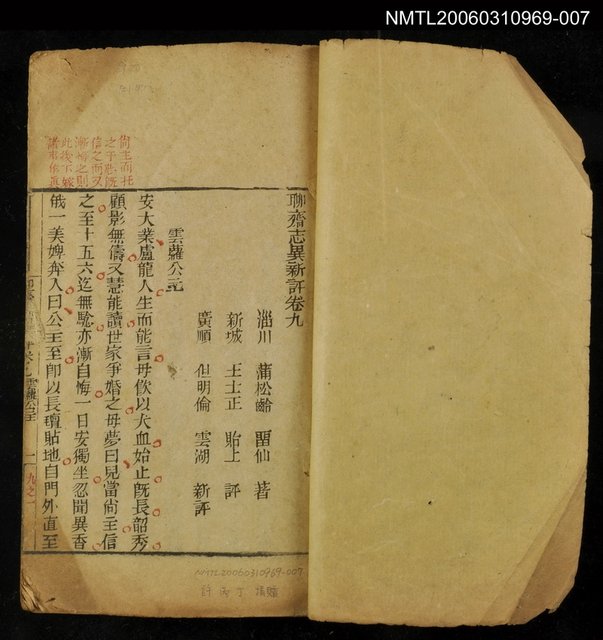 NMTL20060310969-007
聊齋志異新評卷九
淄川 蒲松齡 畱仙 著
新城 王士正 貽上 評
廣順 但明倫 雲湖 新評
雲蘿公主
安大業盧龍人生而能言母飲以犬血始止既長韶秀
顧影無儔又慧能讀世家爭婚之母夢曰兒當尚主信
之至十五六迄無驗亦漸自悔一日安獨坐忽聞異香
俄一美婢奔入曰公主至即以長氊貼地自門外直至
尚主而托
之于夢既
信之而又
漸悔之則
此後下嫁
雲蘿公主
一
九之一
NMTL20060310969-007
許丙丁 捐贈